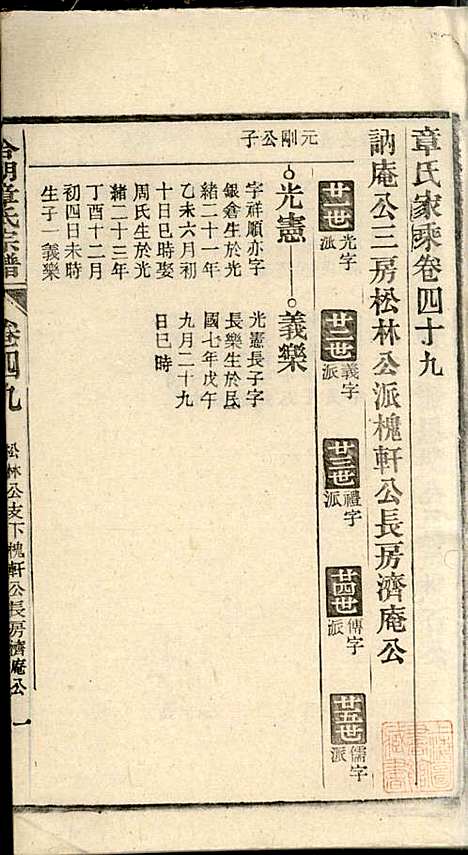 章氏家乘卷四十九
訥庵公三房松林公派槐軒公長房濟庵公
廿一世 光字派
廿二世 義字派
廿三世 禮字派
廿四世 傳字派
廿五世 儒字派
元剛公子
光憲
字祥順亦字
銀倉生於光
緒二十一年
乙未六月初
十日巳時娶
周氏生於光
緒二十三年
丁酉十二月
初四日未時
生子一義樂
義樂
光憲長子字
長樂生於民
國七年戊午
九月二十九
日巳時
章氏宗譜
卷四九
松林公支下槐軒公長房濟庵公
一